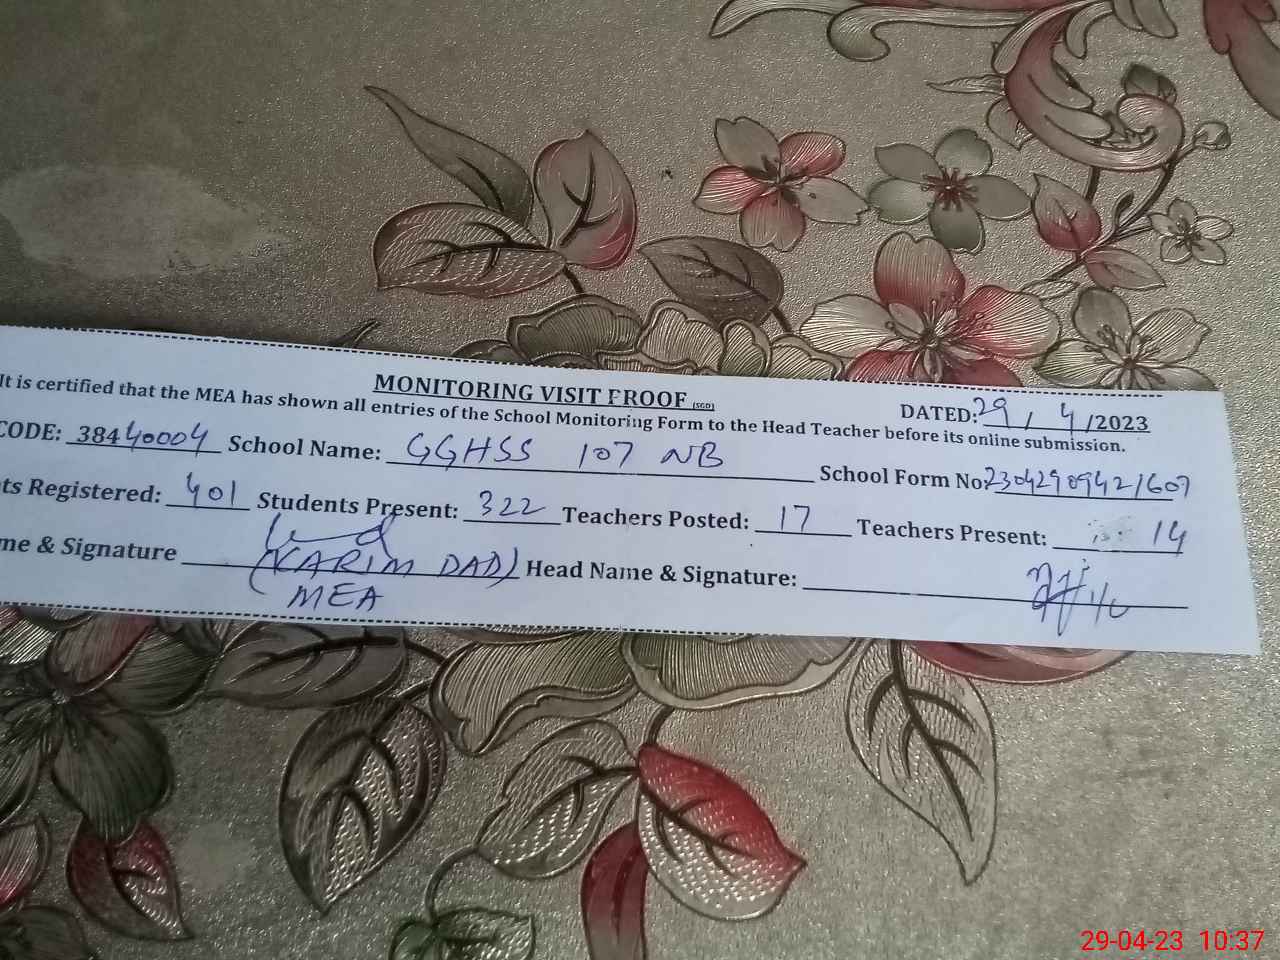 MONITORING VISIT PROOF (SGD)
DATED: 29 / 4 /2023
It is certified that the MEA has shown all entries of the School Monitoring Form to the Head Teacher before its online submission.
CODE: 38440004 School Name: GGHSS 107 NB School Form No: 23042909421607
ts Registered: 401 Students Present: 322 Teachers Posted: 17 Teachers Present: 14
me & Signature (KARIM DAD) Head Name & Signature:
MEA
29-04-23 10:37